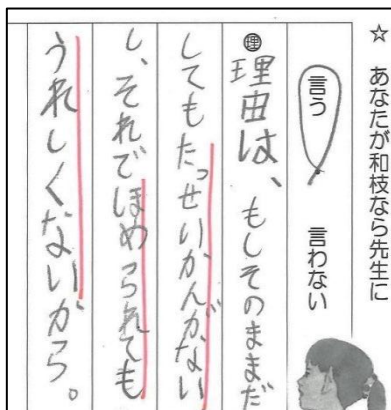 ☆ あなたが和枝なら先生に
言う 言わない
理 理由は、もしそのままだ
してもたっせいかんがない
し、それでほめられても
うれしくないから。